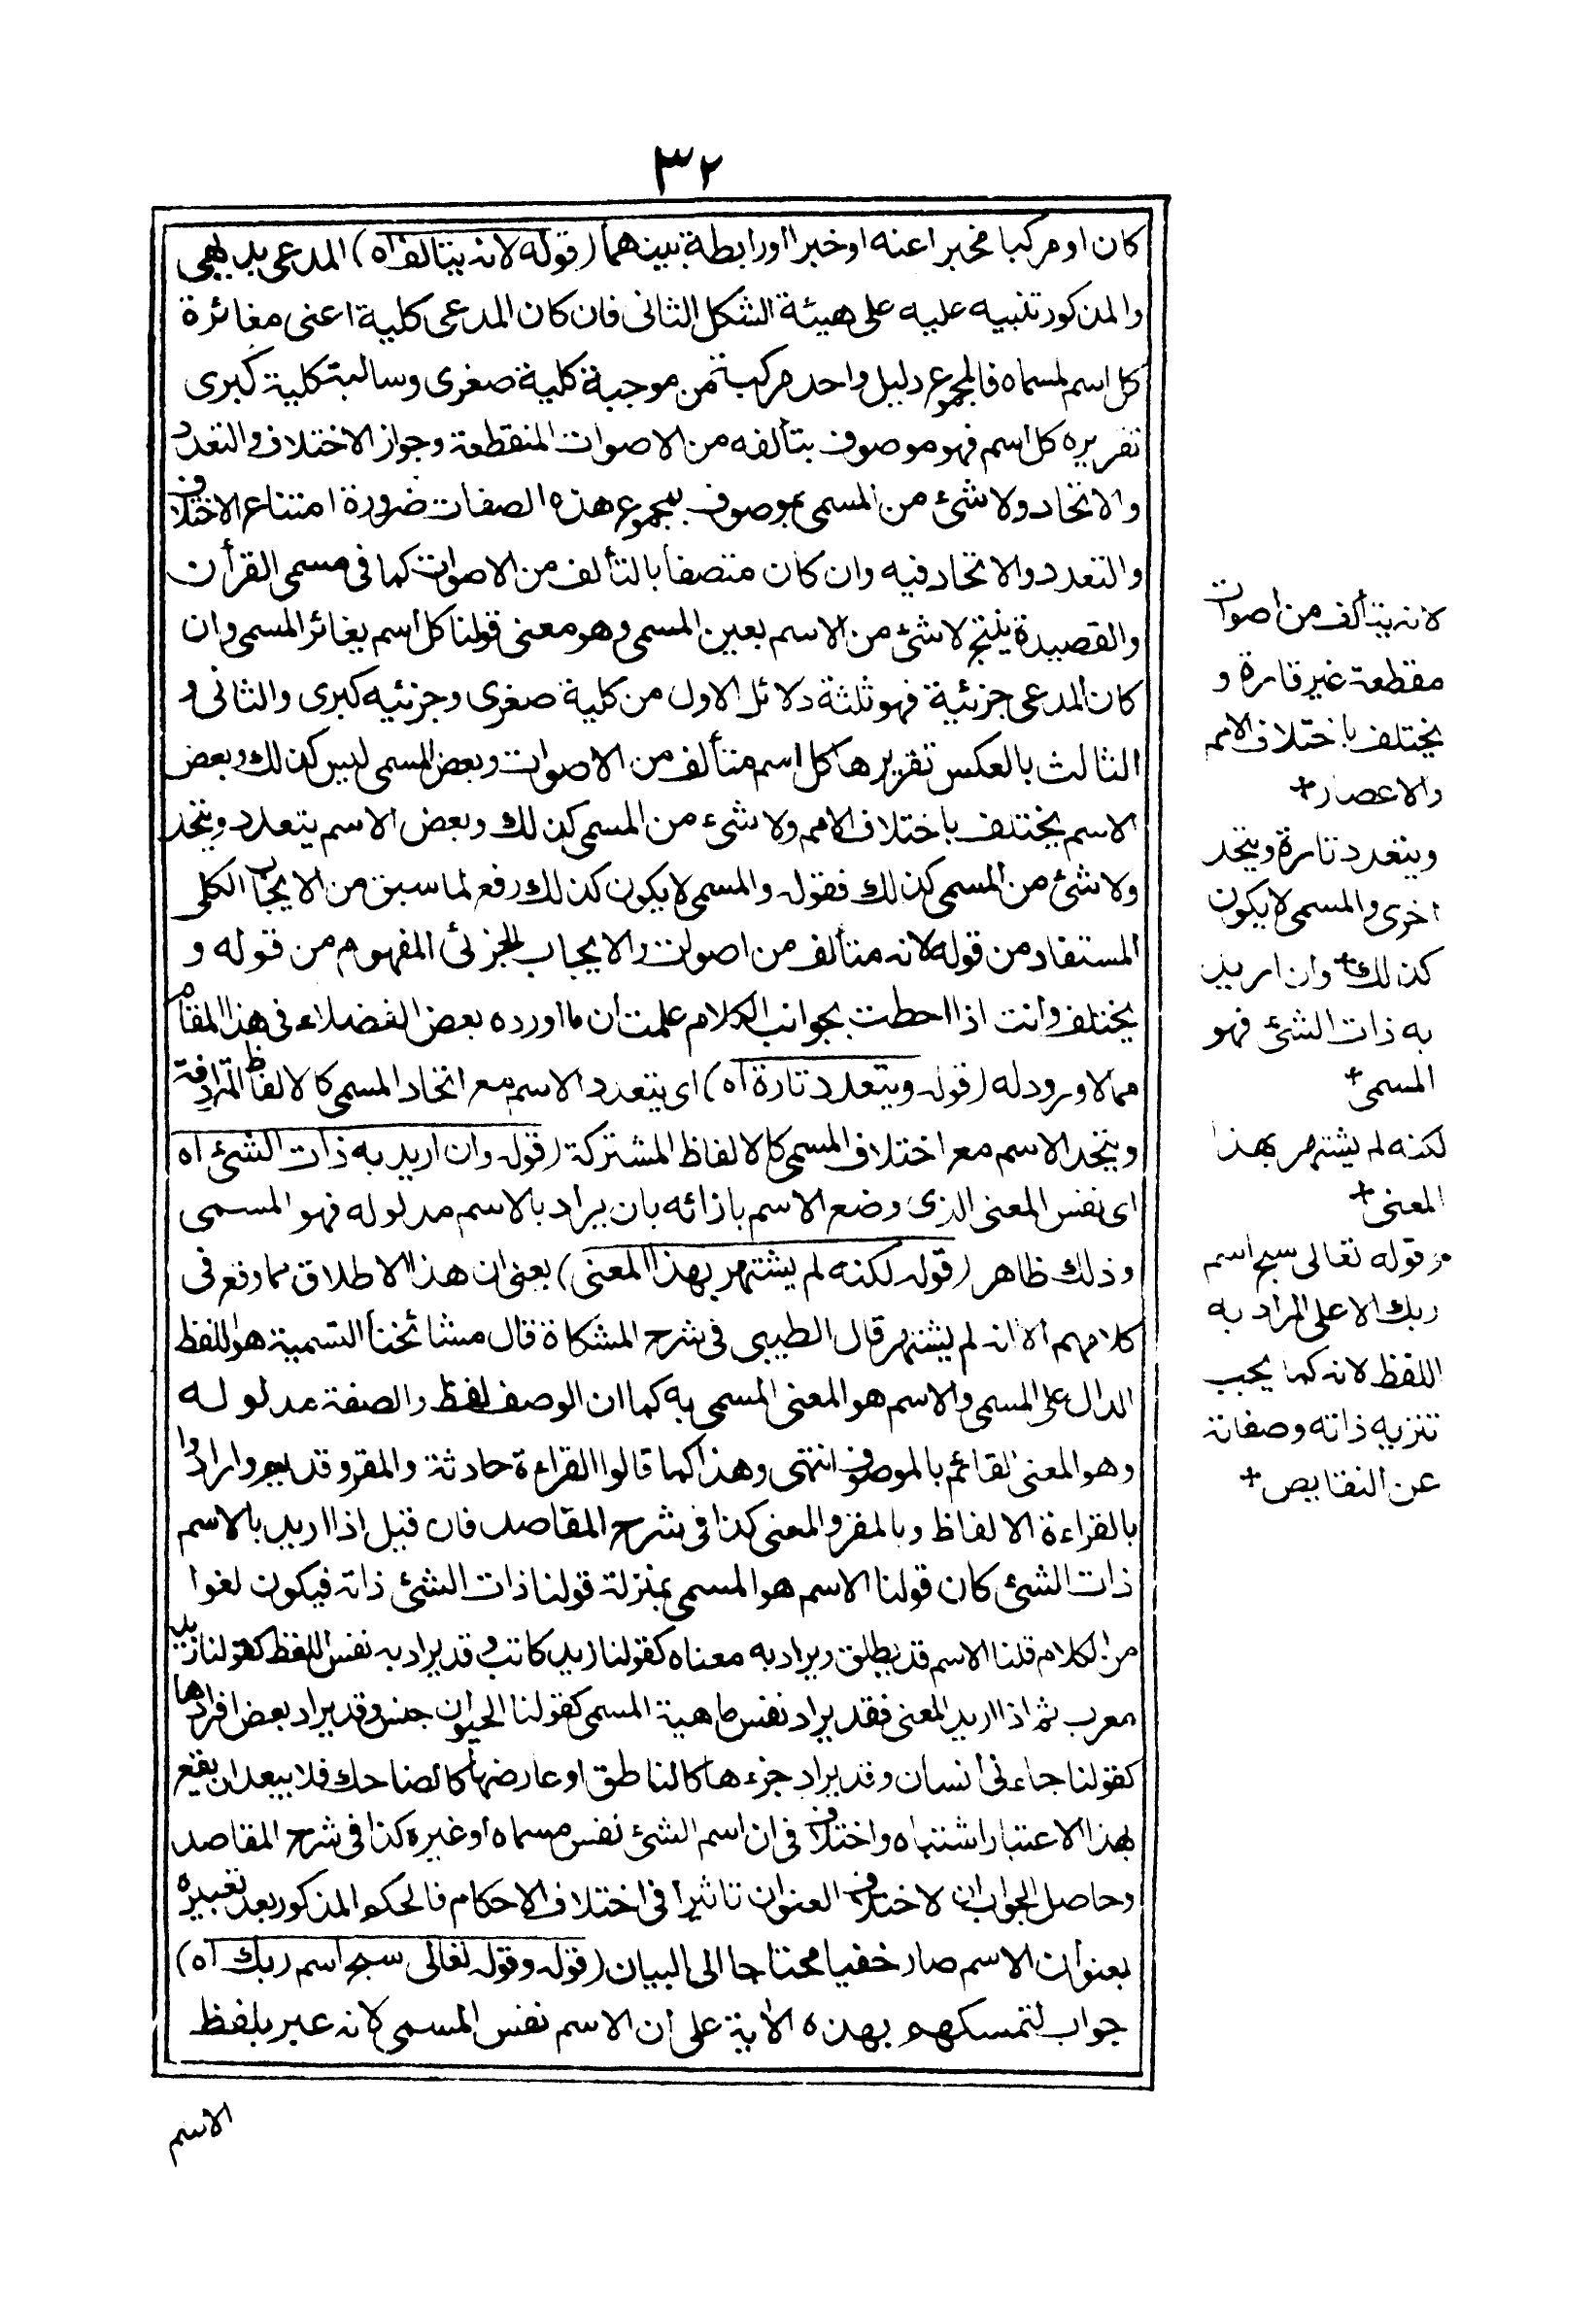 ٣٢
كان او مركبا مخبرا عنه او خبرا اورابطة بينهما (قوله لانه يتالف اه) المدعى بديهى
والمذكور تنبيه عليه على هيئة الشكل الثانى فان كان المدعى كلية اعنى مغائرة
كل اسم لمسماه فالمجموع دليل واحد مركبة من موجبة كلية صغرى وسالبة كلية كبرى
تقريره كل اسم فهو موصوف بتألفه من الاصوات المنقطعة وجواز الاختلاف والتعدد
والاتحاد ولا شئ من المسمى بموصوف بمجموع هذه الصفات ضرورة امتناع الاختلاف
والتعدد والاتحاد فيه وان كان متصفا بالتألف من الاصوات كما فى مسمى القرأن
والقصيدة ينتج لا شئ من الاسم بعين المسمى وهو معنى قولنا كل اسم يغائر المسمى وان
كان المدعى جزئية فهو ثلثة دلائل الاول من كلية صغرى وجزئيه كبرى والثانى و
الثالث بالعكس تقريرها كل اسم متألف من الاصوات وبعض المسمى ليس كذلك وبعض
الاسم يختلف باختلاف الامم ولا شىء من المسمى كذلك وبعض الاسم يتعدد ويتحد
ولا شئ من المسمى كذلك فقوله والمسمى لا يكون كذلك رفع لما سبق من الايجاب الكلى
المستفاد من قوله لانه متألف من اصوات والايجاب الجزئى المفهوم من قوله و
يختلف وانت اذا احطت بجوانب الكلام علمت ان ما اورده بعض الفضلاء فى هذا المقام
مما لا ورود له (قوله ويتعدد تارة اه) اى يتعدد الاسم مع اتحاد المسمى كالالفاظ المترادفة
ويتحد الاسم مع اختلاف المسمى كالالفاظ المشتركة (قوله وان اريد به ذات الشئ اه
اى نفس المعنى الذى وضع الاسم بازائه بان يراد بالاسم مدلوله فهو المسمى
وذلك ظاهر (قوله لكنه لم يشتهر بهذا المعنى) يعنى ان هذا الاطلاق مما وقع فى
كلامهم الا انه لم يشتهر قال الطيبى فى شرح المشكاة قال مشائخنا التسمية هو اللفظ
الدال على المسمى والاسم هو المعنى المسمى به كما ان الوصف لفظ والصفة مدلوله
وهو المعنى القائم بالموصوف انتهى وهذا كما قالوا القراءة حادثة والمقرو قديم وارادوا
بالقراءة الالفاظ وبالمقرو المعنى كذا فى شرح المقاصد فان قيل اذا اريد بالاسم
ذات الشئ كان قولنا الاسم هو المسمى بمنزلة قولنا ذات الشئ ذاته فيكون لغوا
من الكلام قلنا الاسم قد يطلق ويراد به معناه كقولنا زيد كاتب وقد يراد به نفس اللفظ كقولنا زيد
معرب ثم اذا اريد المعنى فقد يراد نفس ماهية المسمى كقولنا الحيوان جنس وقد يراد بعض افرادها
كقولنا جاءنى انسان وقد يراد جزءها كالناطق او عارضها كالضاحك فلا يبعد ان يقع
بهذا الاعتبار اشتباه واختلاف فى ان اسم الشئ نفس مسماه او غيره كذا فى شرح المقاصد
وحاصل الجواب ان لاختلاف العنوان تاثيرا فى اختلاف الاحكام فالحكم المذكور بعد تعبيره
بعنوان الاسم صار خفيا محتاجا الى البيان (قوله وقوله تعالى سبح اسم ربك اه)
جواب لتمسكهم بهذه الاية على ان الاسم نفس المسمى لانه عبر بلفظ
الاسم
لانه يتألف من اصوات
مقطعة غير قارة و
يختلف باختلاف الامم
والاعصار+
ويتعدد تارة ويتحد
اخرى والمسمى لا يكون
كذلك+ وان اريد
به ذات الشئ فهو
المسمى+
لكنه لم يشتهر بهذا
المعنى+
وقوله تعالى سبح اسم
ربك الاعلى المراد به
اللفظ لانه كما يجب
تنزيه ذاته وصفاته
عن النقايص+